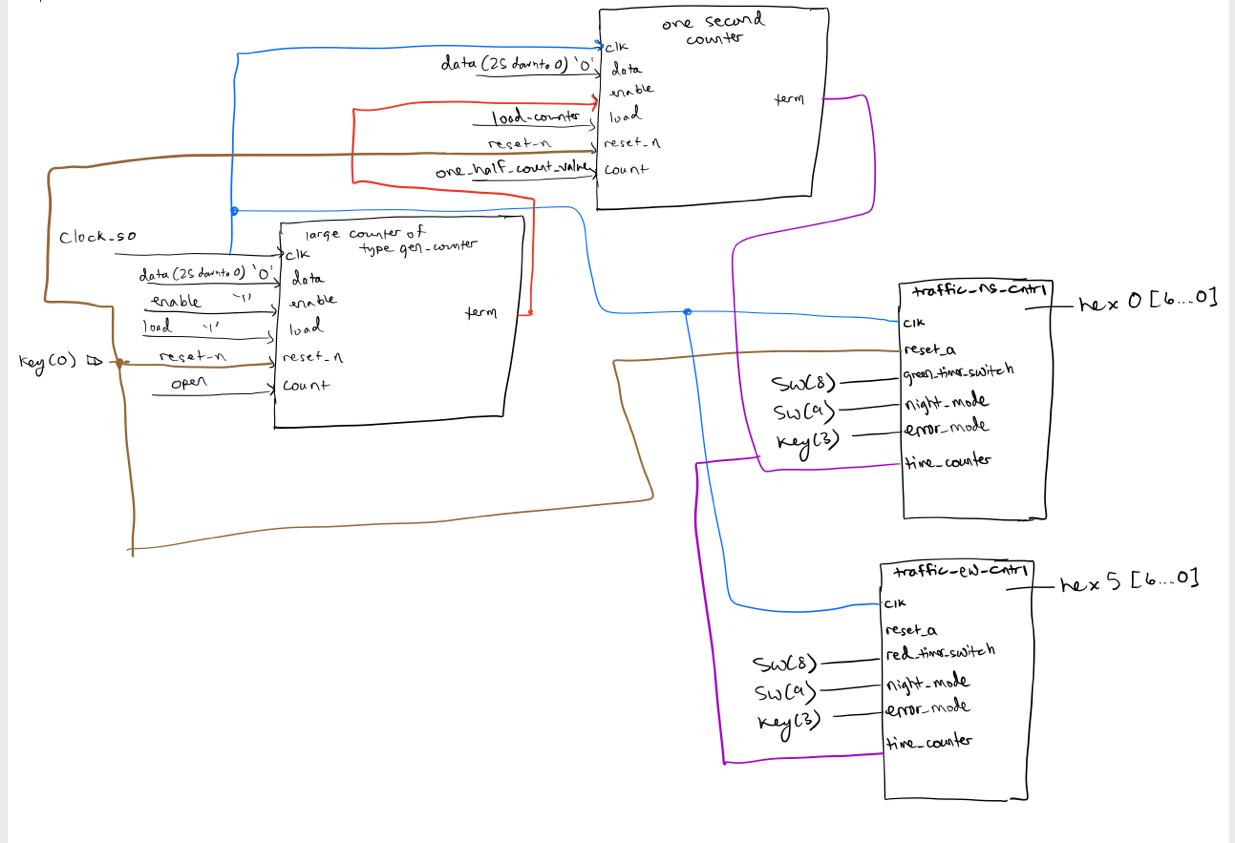 one second
counter
clk
data (25 downto 0) '0'
data
enable
term
load-counter
load
reset-n
reset_n
one_half_count_value
count
Clock_50
large counter of
type gen-counter
clk
data (25 downto 0) '0'
data
enable '1'
enable
term
load '1'
load
Key(0)
reset-n
reset_n
open
count
traffic-ns-cntrl
hex 0 [6...0]
clk
reset_a
SW(8)
green_timer_switch
SW(9)
night_mode
Key(3)
error_mode
time_counter
traffic-ew-cntrl
hex 5 [6...0]
clk
reset_a
SW(8)
red_timer_switch
SW(9)
night_mode
Key(3)
error_mode
time_counter